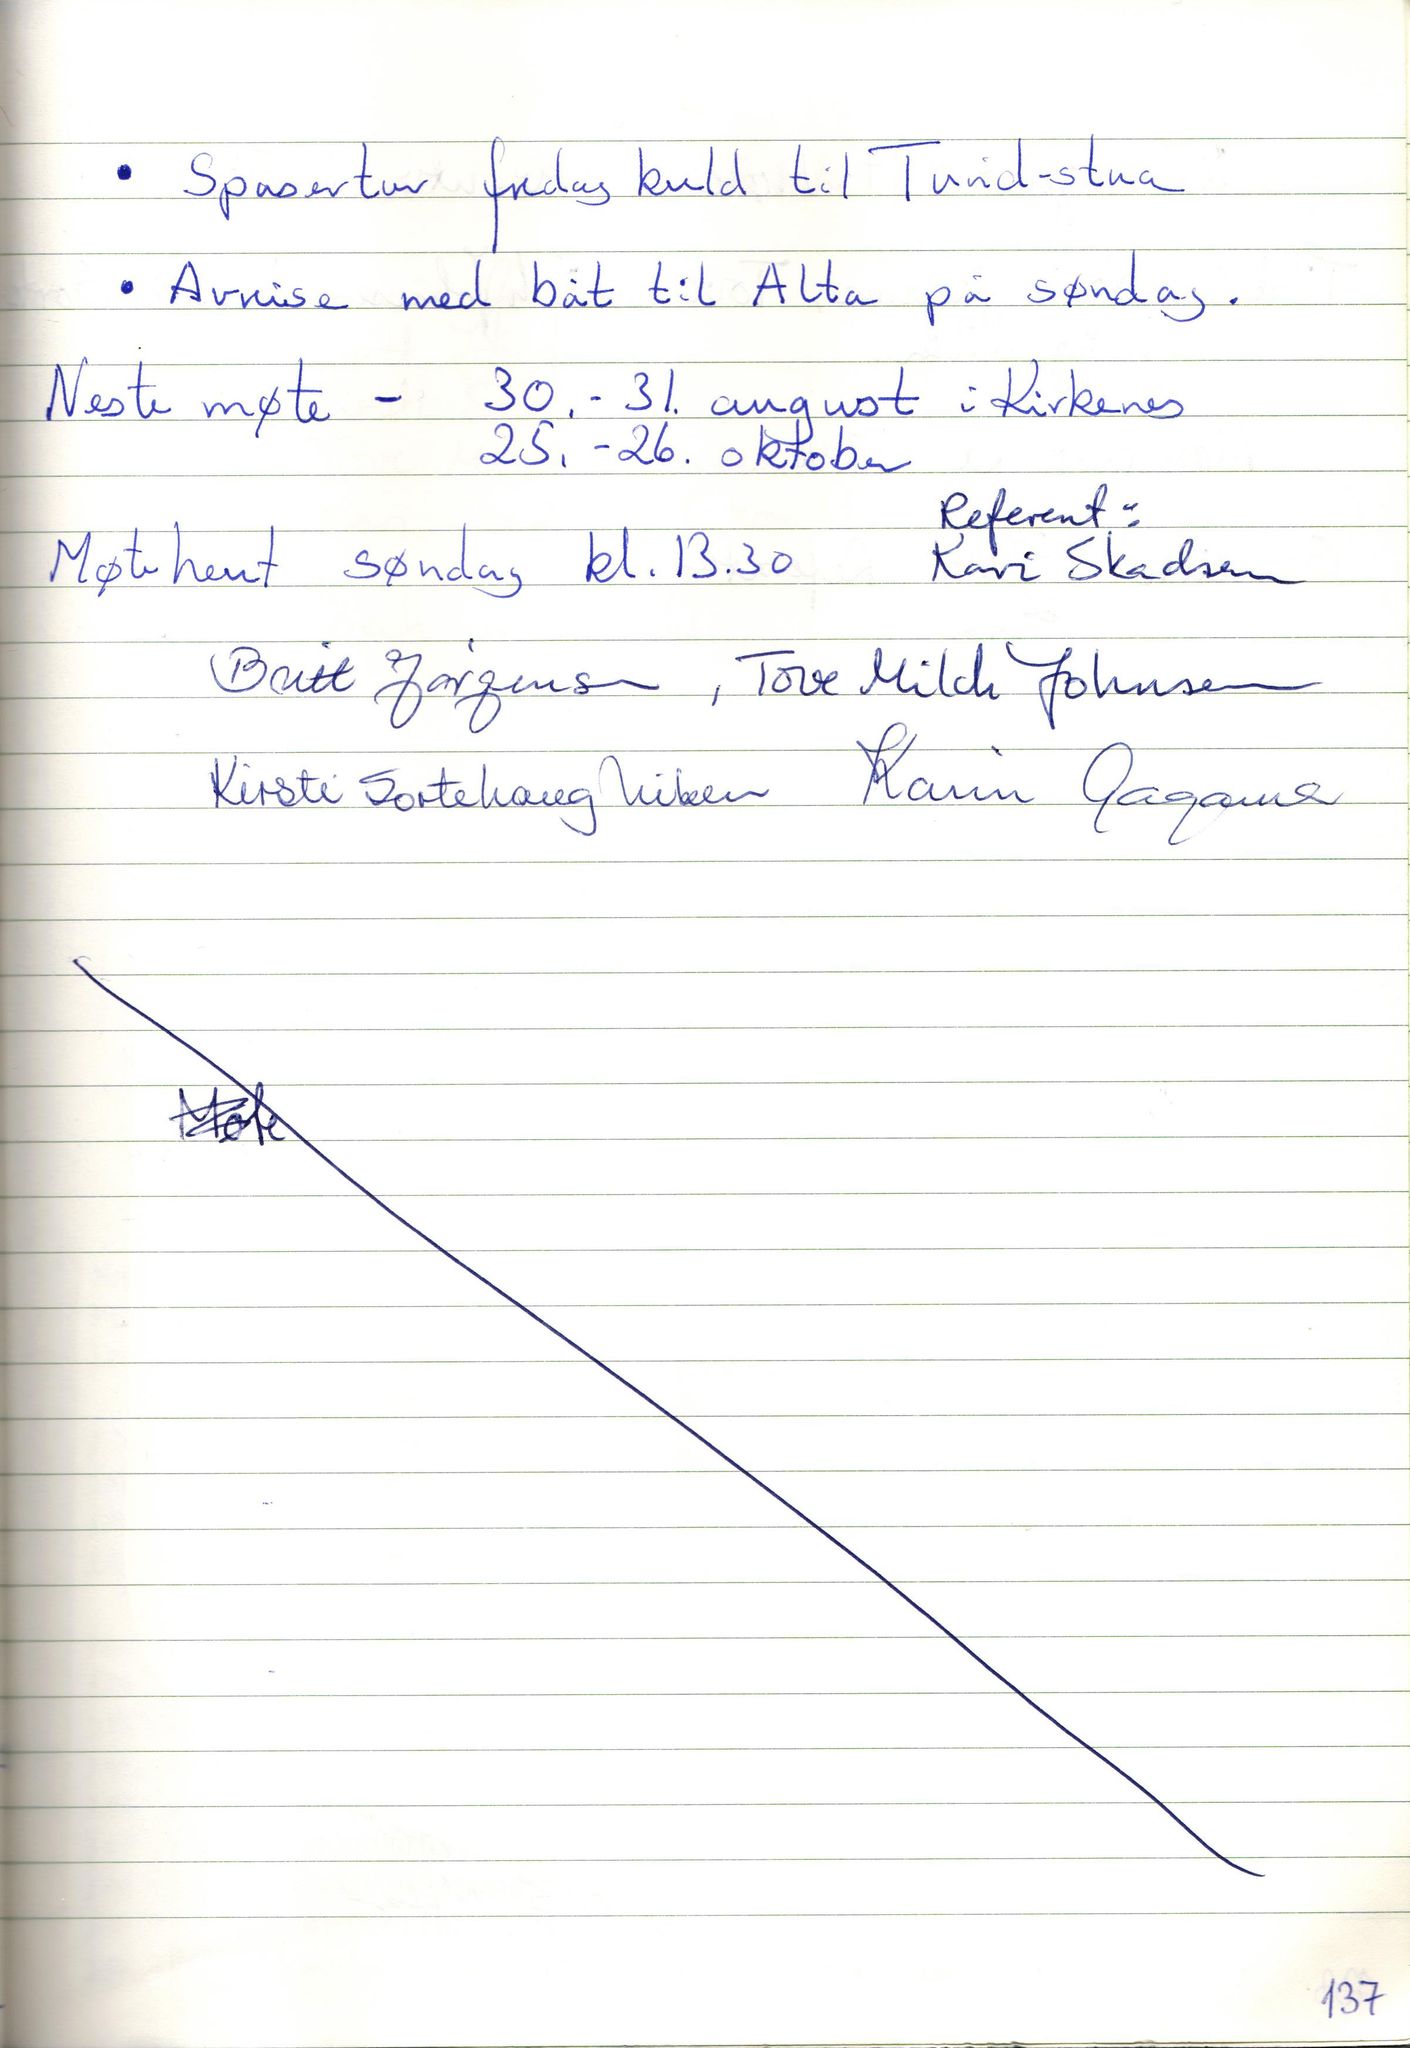 • Spasertur fredag kveld til Turid-stua
• Avreise med båt til Alta på søndag.
Neste møte - 30.-31. august i Kirkenes
25.-26. oktober
Referent:
Møte hevt søndag kl. 13.30 Kari Skadsem
Britt Jörgensen, Tove Milde Johnsen
Kirsti Sortehaug Karin
Møte
137